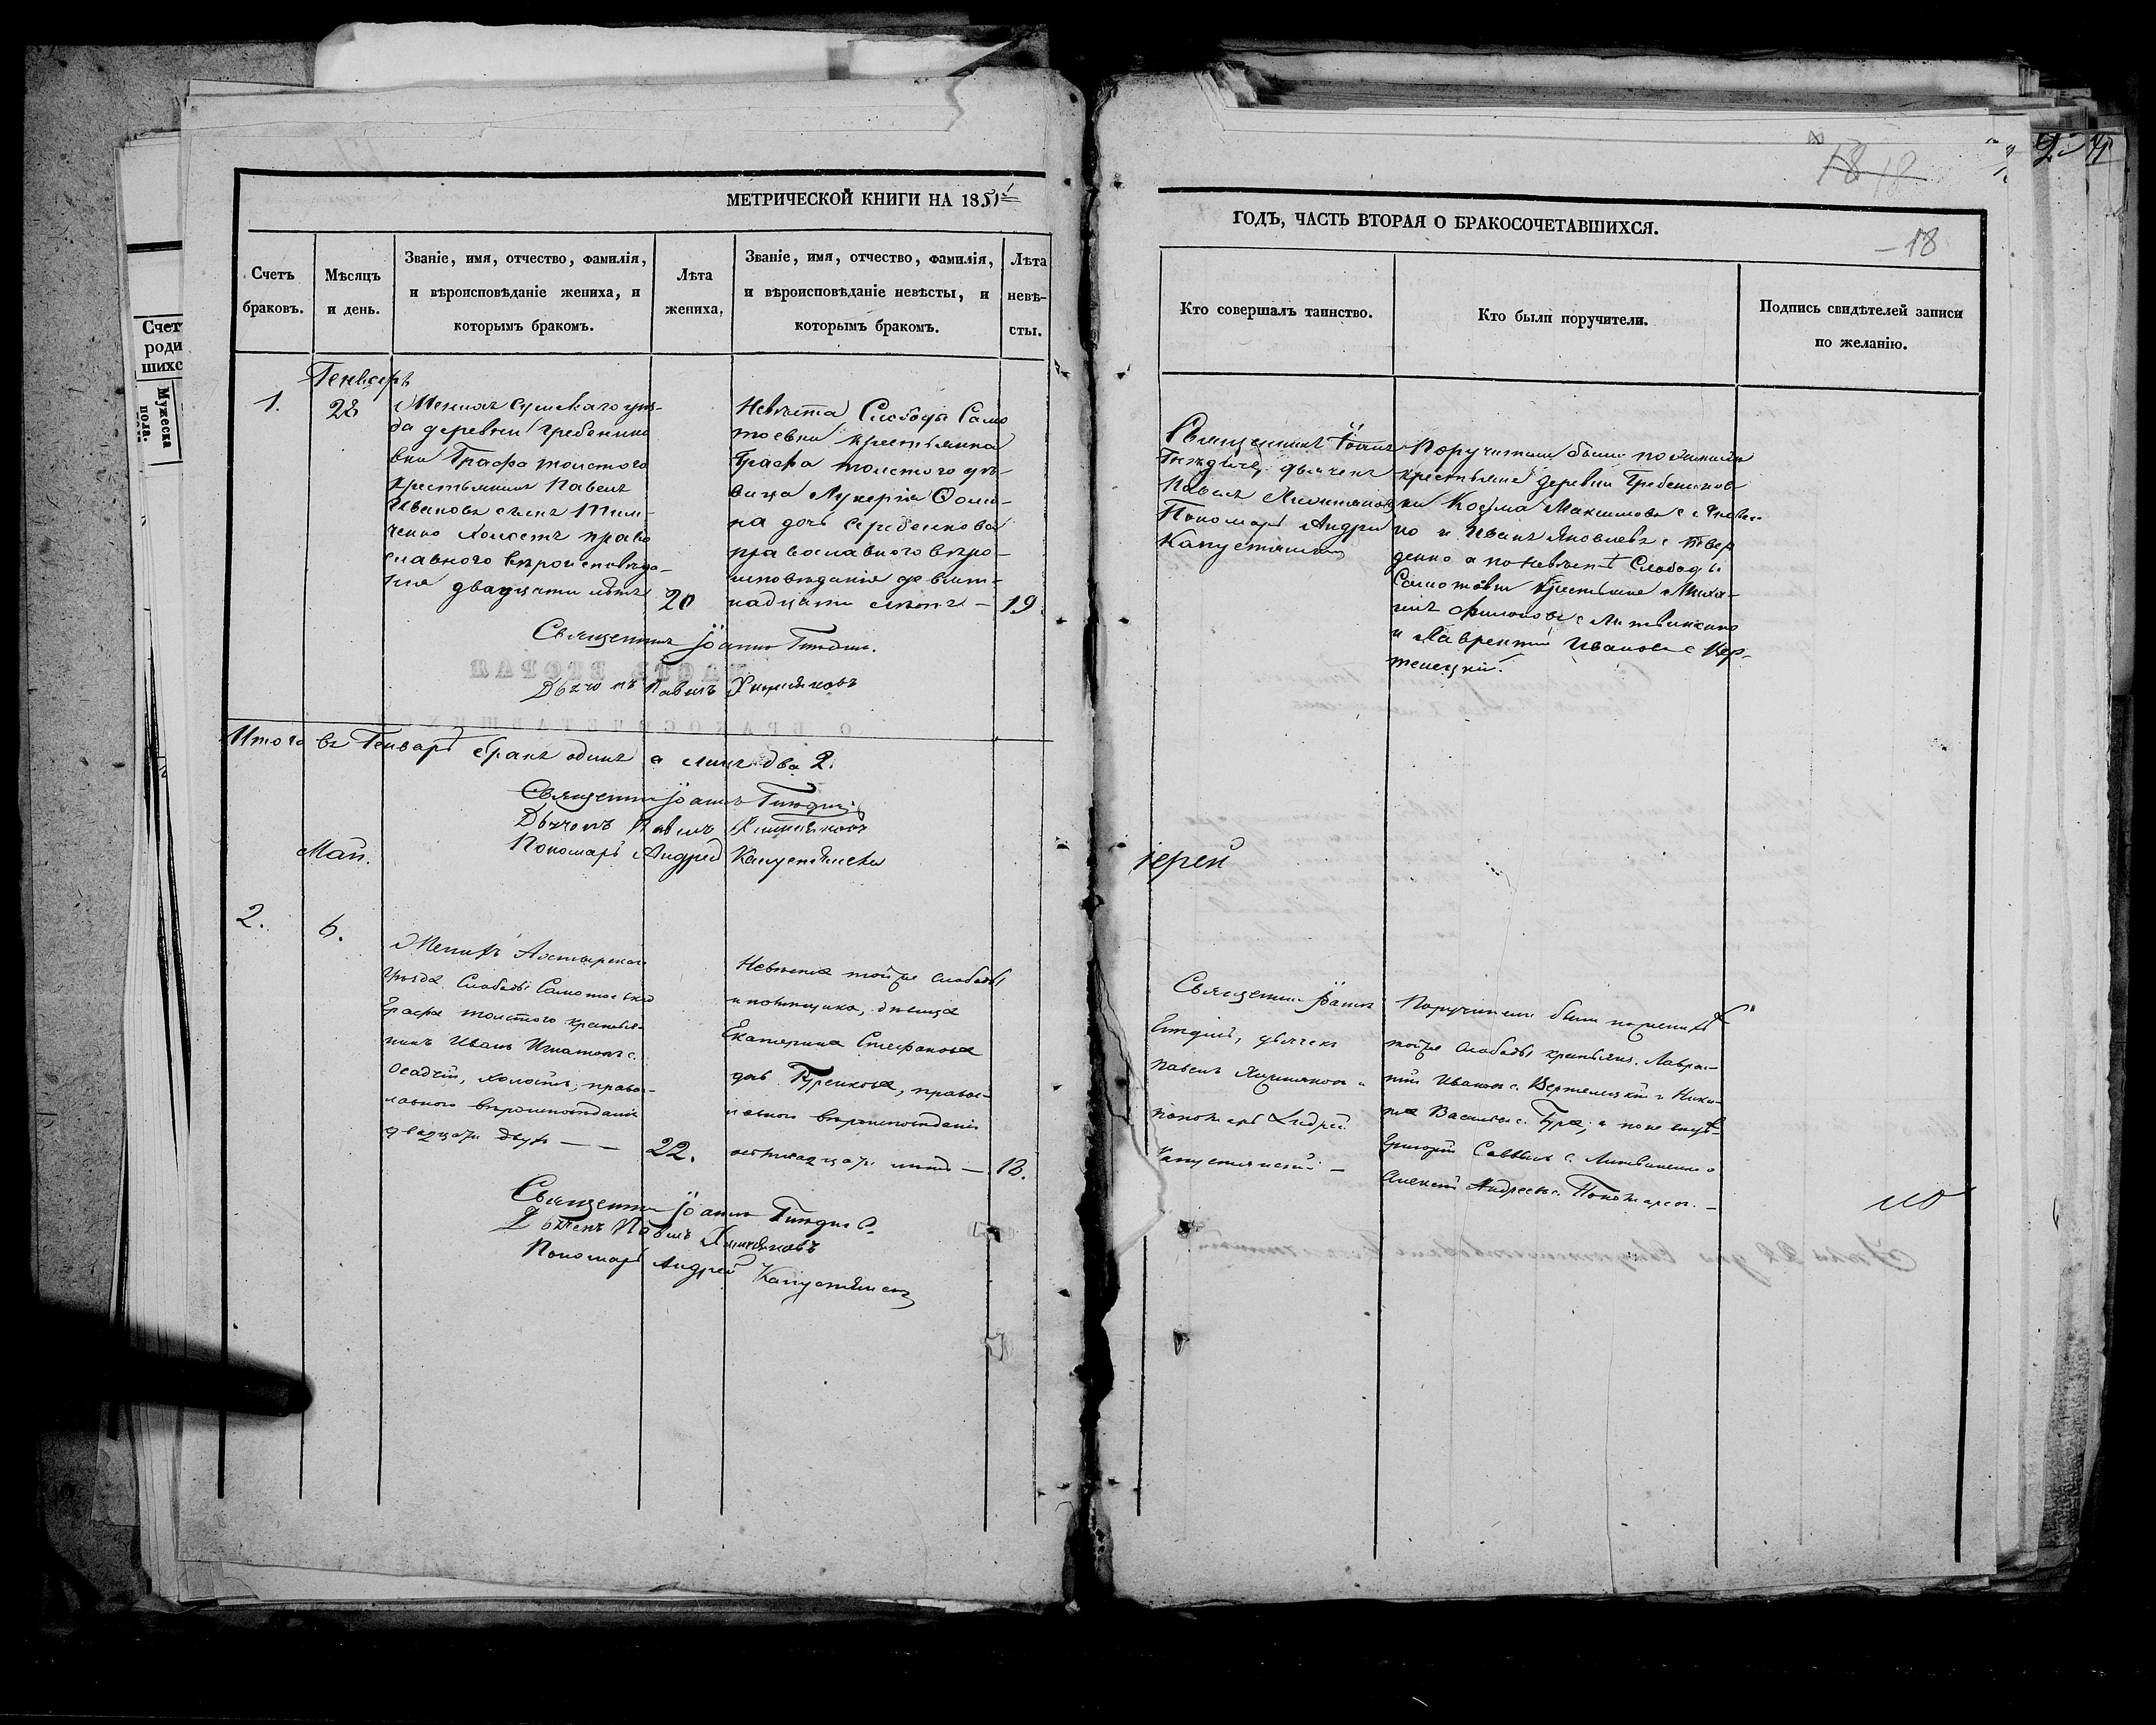 МЕТРИЧЕСКОЙ КНИГИ НА 1851
Счетъ
браковъ.
Мѣсяцъ
и день.
Званіе, имя, отчество, фамилія,
и вѣроисповѣданіе жениха, и
которымъ бракомъ.
Лѣта
жениха.
Званіе, имя, отчество, фамилія,
и вѣроисповѣданіе невѣсты, и
которымъ бракомъ.
Лѣта
невѣ-
сты.
Генварь
1.
28
Женихъ Сумскаго уѣз-
да деревни Гребенико
вки Графа толстого
крестьянинъ Павелъ
Ивановъ сынъ
холостъ право
славного вѣроисповѣда-
нія двадцати лѣтъ
20
Невѣста Слободы Само
тоевки крестьянина
Графа толстого дѣ-
вица Лукерія Ѳоми-
на дочь
православного вѣро-
исповѣданія девят-
надцати лѣтъ —
19.
Священникъ Іоаннъ
Дьячокъ Павелъ
Итого въ Генварѣ бракъ одинъ а лицъ два 2.
Священникъ Іоаннъ
Дьячокъ Павелъ
Пономарь Андрей
Май.
2.
6.
Женихъ Ахтырскаго
Уѣзда Слободы Самотоевки
Графа толстого крестья-
нинъ Иванъ Игнатовъ с.
Осадчій, холостъ, право-
славного вѣроисповѣданія
двадцати двухъ — —
22.
Невѣста тойже слободы
и помѣщика, дѣвица
Екатерина Стефанова
дочь Гуренкова, правос-
лавного вѣроисповѣданія
осьмнадцати лѣтъ —
18.
Священникъ Іоаннъ
Дьячекъ Павелъ
Пономарь Андрей
Счет
роди
шихс
Мужеска
пола.
18 18
ГОДЪ, ЧАСТЬ ВТОРАЯ О БРАКОСОЧЕТАВШИХСЯ.
— 18
Кто совершалъ таинство.
Кто были поручители.
Подпись свидѣтелей записи
по желанію.
Священникъ Іоаннъ
дьячекъ
Павелъ
Пономарь Андрей
Поручители были по женихѣ
крестьяне деревни Гребеников
ки Косма Максимовъ с.
но и Иванъ Яковлевъ с. Твер
денко а по невѣстѣ Слободы
Самотоевки крестьяне Миха-
илъ Филиповъ с. Литвиненко
и Лаврентій Ивановъ с. Вер-
телецкій.
іерей
Священникъ Іоаннъ
дьячекъ
Павелъ
пономарь Андрей
Поручители были по женихѣ
тойже слободы крестьяне. Лаврен-
тій Ивановъ с. Вертелецкій и Ники-
та Васильевъ с. Гура, а по невѣстѣ
Григорій Саввинъ с. Литвиненко
Алексѣй Андреевъ с. Пономарев. —